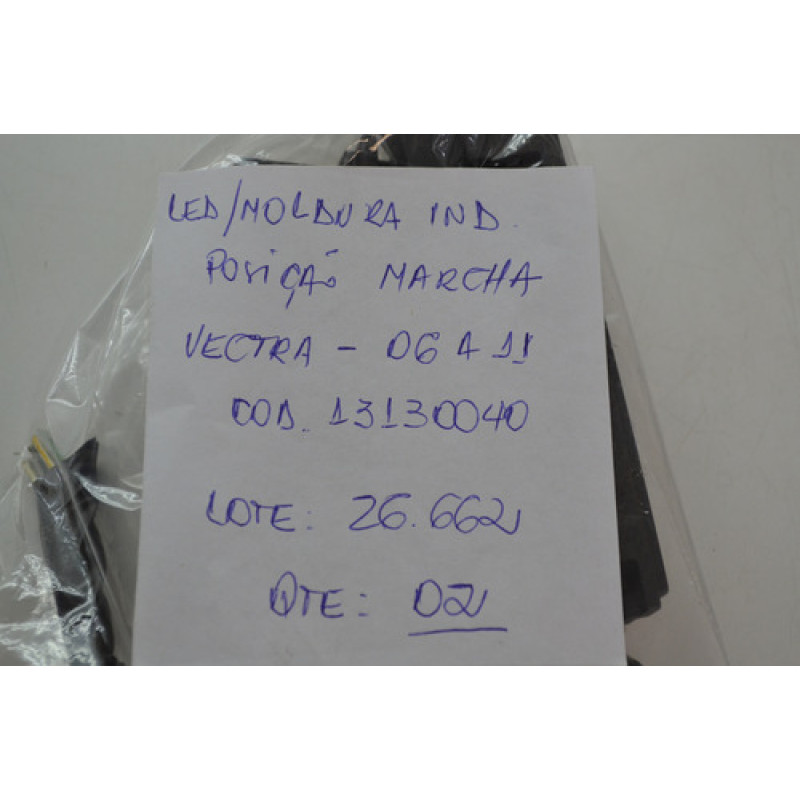 LED/MOLDURA IND.
POSIÇÃO MARCHA
VECTRA - 06 A 11
COD. 13130040
LOTE: 26.662
QTE: 02